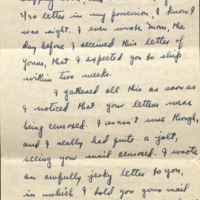 1/30 letter in my possession, I knew
I was right. I even wrote Mom, the
day before I received this letter of
yours, that I expected you to ship
within two weeks.
I gathered all this as soon as
I noticed that your letters were
being censored. I wasn't sure though,
and I really had quite a jolt,
seeing your mail censored. I wrote
an awfully jerky letter to you,
in which I told you your mail